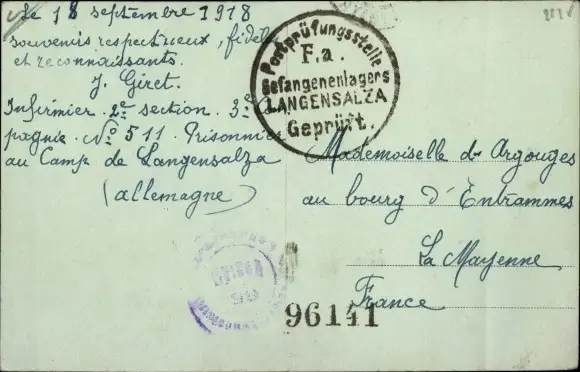 Le 18 septembre 1918
souvenirs respectueux, fidèles
et reconnaissants.
J. Giret.
Infirmier 2e section. 3e
pagnie. No 511. Prisonnier
au Camp de Langensalza
(allemagne)
Postprüfungsstelle
F.a.
Gefangenenlagers
LANGENSALZA
Geprüft.
Mademoiselle de Argouges
au bourg d'Entrammes
La Mayenne
France
96141